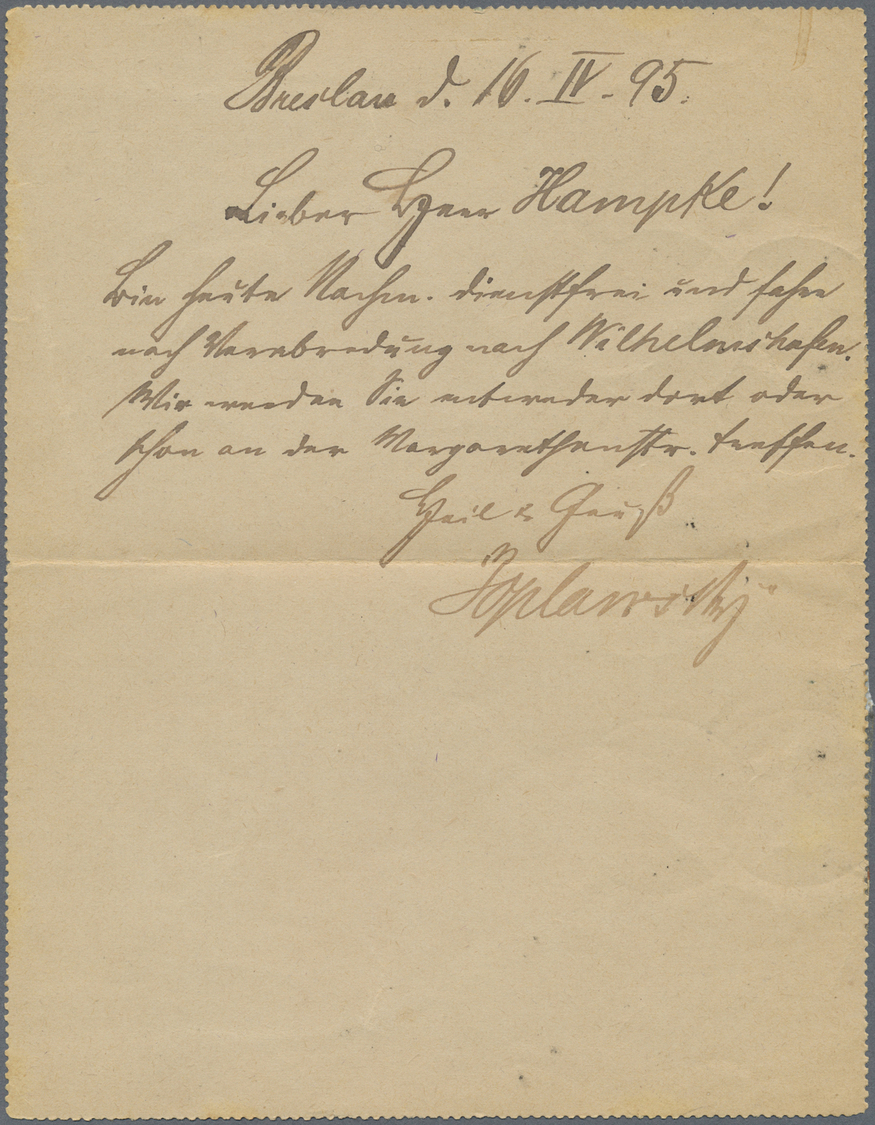 Breslau d. 16. IV. 95.
Lieber Herr Hampke!
Bin heute Nachm. dienstfrei und fahre
nach Verabredung nach Wilhelmshafen.
Wir werden Sie entweder dort oder
schon an der Margarethenstr. treffen.
Heil & Gruß